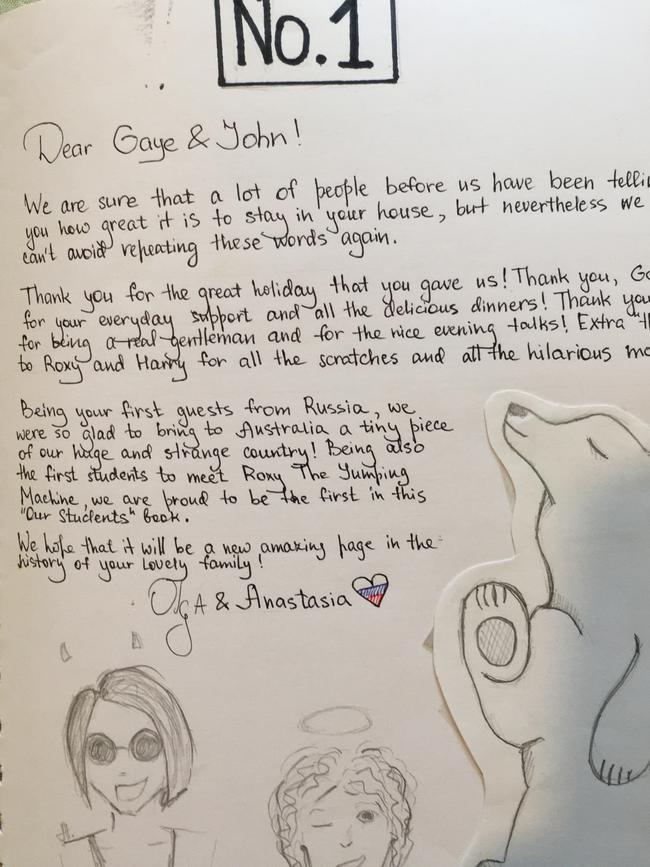 No.1
Dear Gaye & John!
We are sure that a lot of people before us have been
you how great it is to stay in your house, but nevertheless we
can't avoid repeating these words again.
Thank you for the great holiday that you gave us! Thank you,
for your everyday support and all the delicious dinners! Thank you
for being a real gentleman and for the nice evening talks! Extra
to Roxy and Harry for all the scratches and all the hilarious
Being your first guests from Russia, we
were so glad to bring to Australia a tiny piece
of our huge and strange country! Being also
the first students to meet Roxy The Jumping
Machine, we are proud to be the first in this
"Our Students" book.
We hope that it will be a new amazing page in the
history of your Lovely family!
Olga & Anastasia